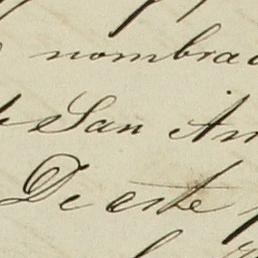 nombrad
San An
De este